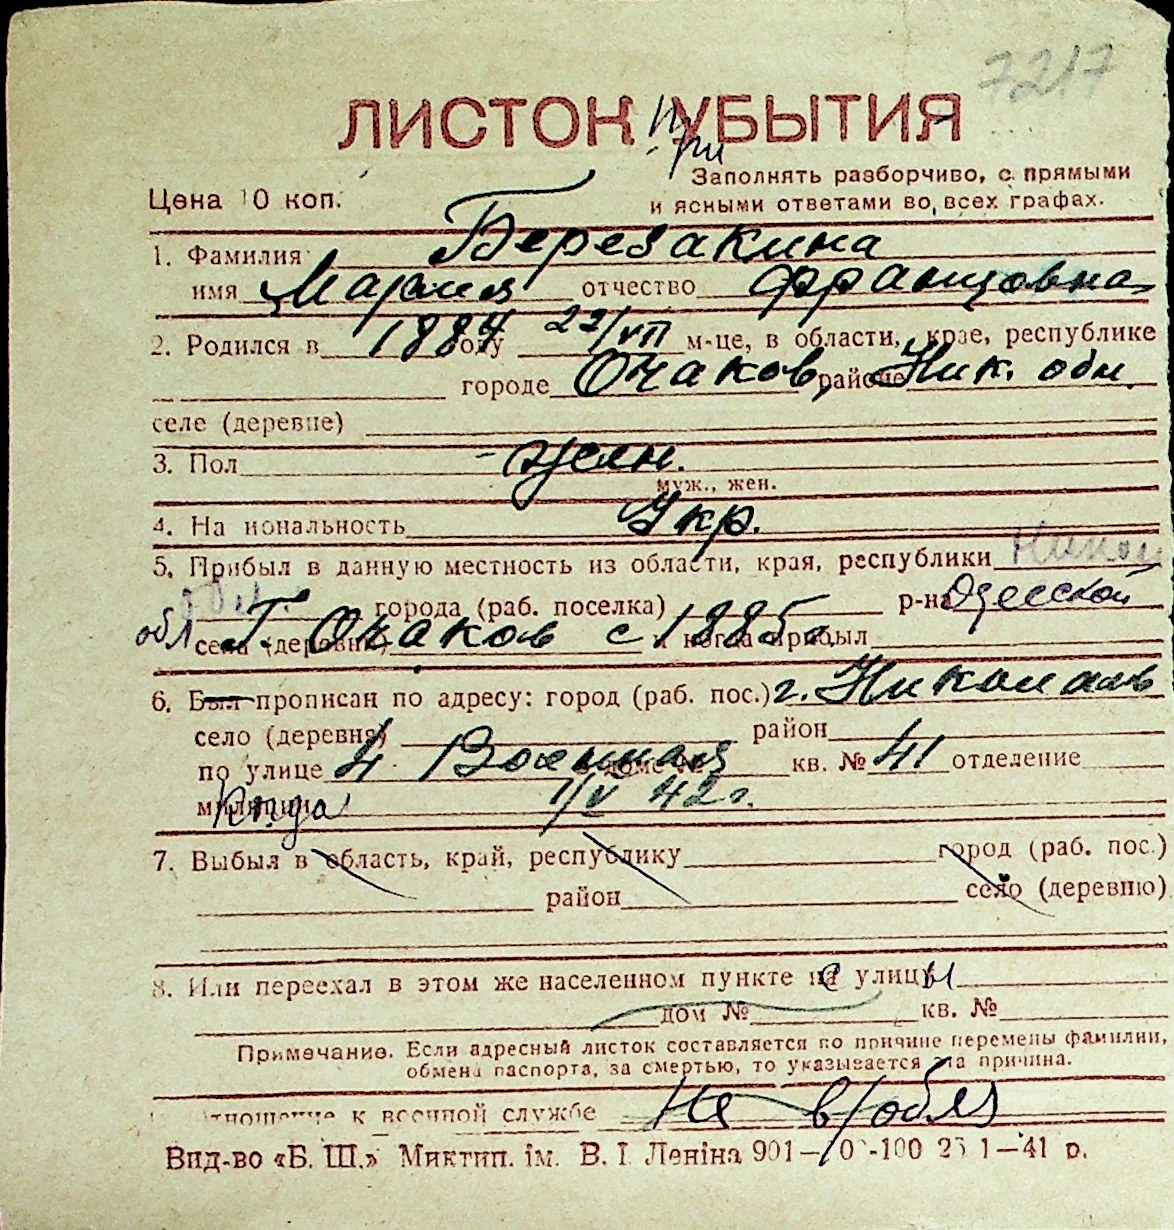 7217
ЛИСТОК УБЫТИЯ
При
Заполнять разборчиво, с прямыми
Цена 10 коп. и ясными ответами во всех графах.
1. Фамилия Березакина
имя Мария отчество Францовна
2. Родился в 1884 году 22/VII м-це, в области, крае, республике
городе Очаков, районе Ник. обл.
селе (деревне)
3. Пол жен.
муж., жен.
4. На иональность Укр.
5. Прибыл в данную местность из области, края, республики Никол
обл. города (раб. поселка) р-на Одесской
обл Г. Очаков с 1885 села (деревни) и когда прибыл
6. Был прописан по адресу: город (раб. пос.) г. Николаев
село (деревня) район
по улице 4 Военная в доме № кв. № 41 отделение
милиции Когда 1/V 42 г.
7. Выбыл в область, край, республику город (раб. пос.)
район село (деревню)
8. Или переехал в этом же населенном пункте на с улицы
дом № кв. №
Примечание. Если адресный листок составляется по причине перемены фамилии,
обмена паспорта, за смертью, то указывается эта причина.
тношение к военной службе Не в/обяз
Вид-во «Б. Ш.» Миктип. ім. В. І. Леніна 901— 0 -100 25 1—41 р.